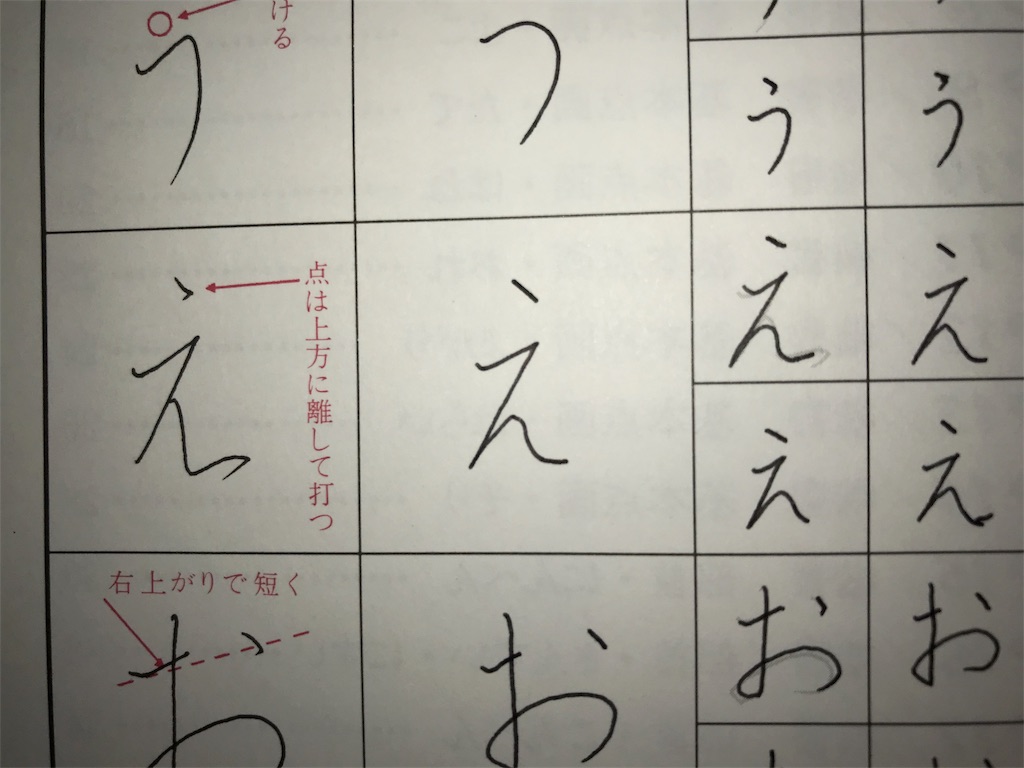 ける
う う う う
点は上方に離して打つ
え え え え
え え
右上がりで短く
お お お お